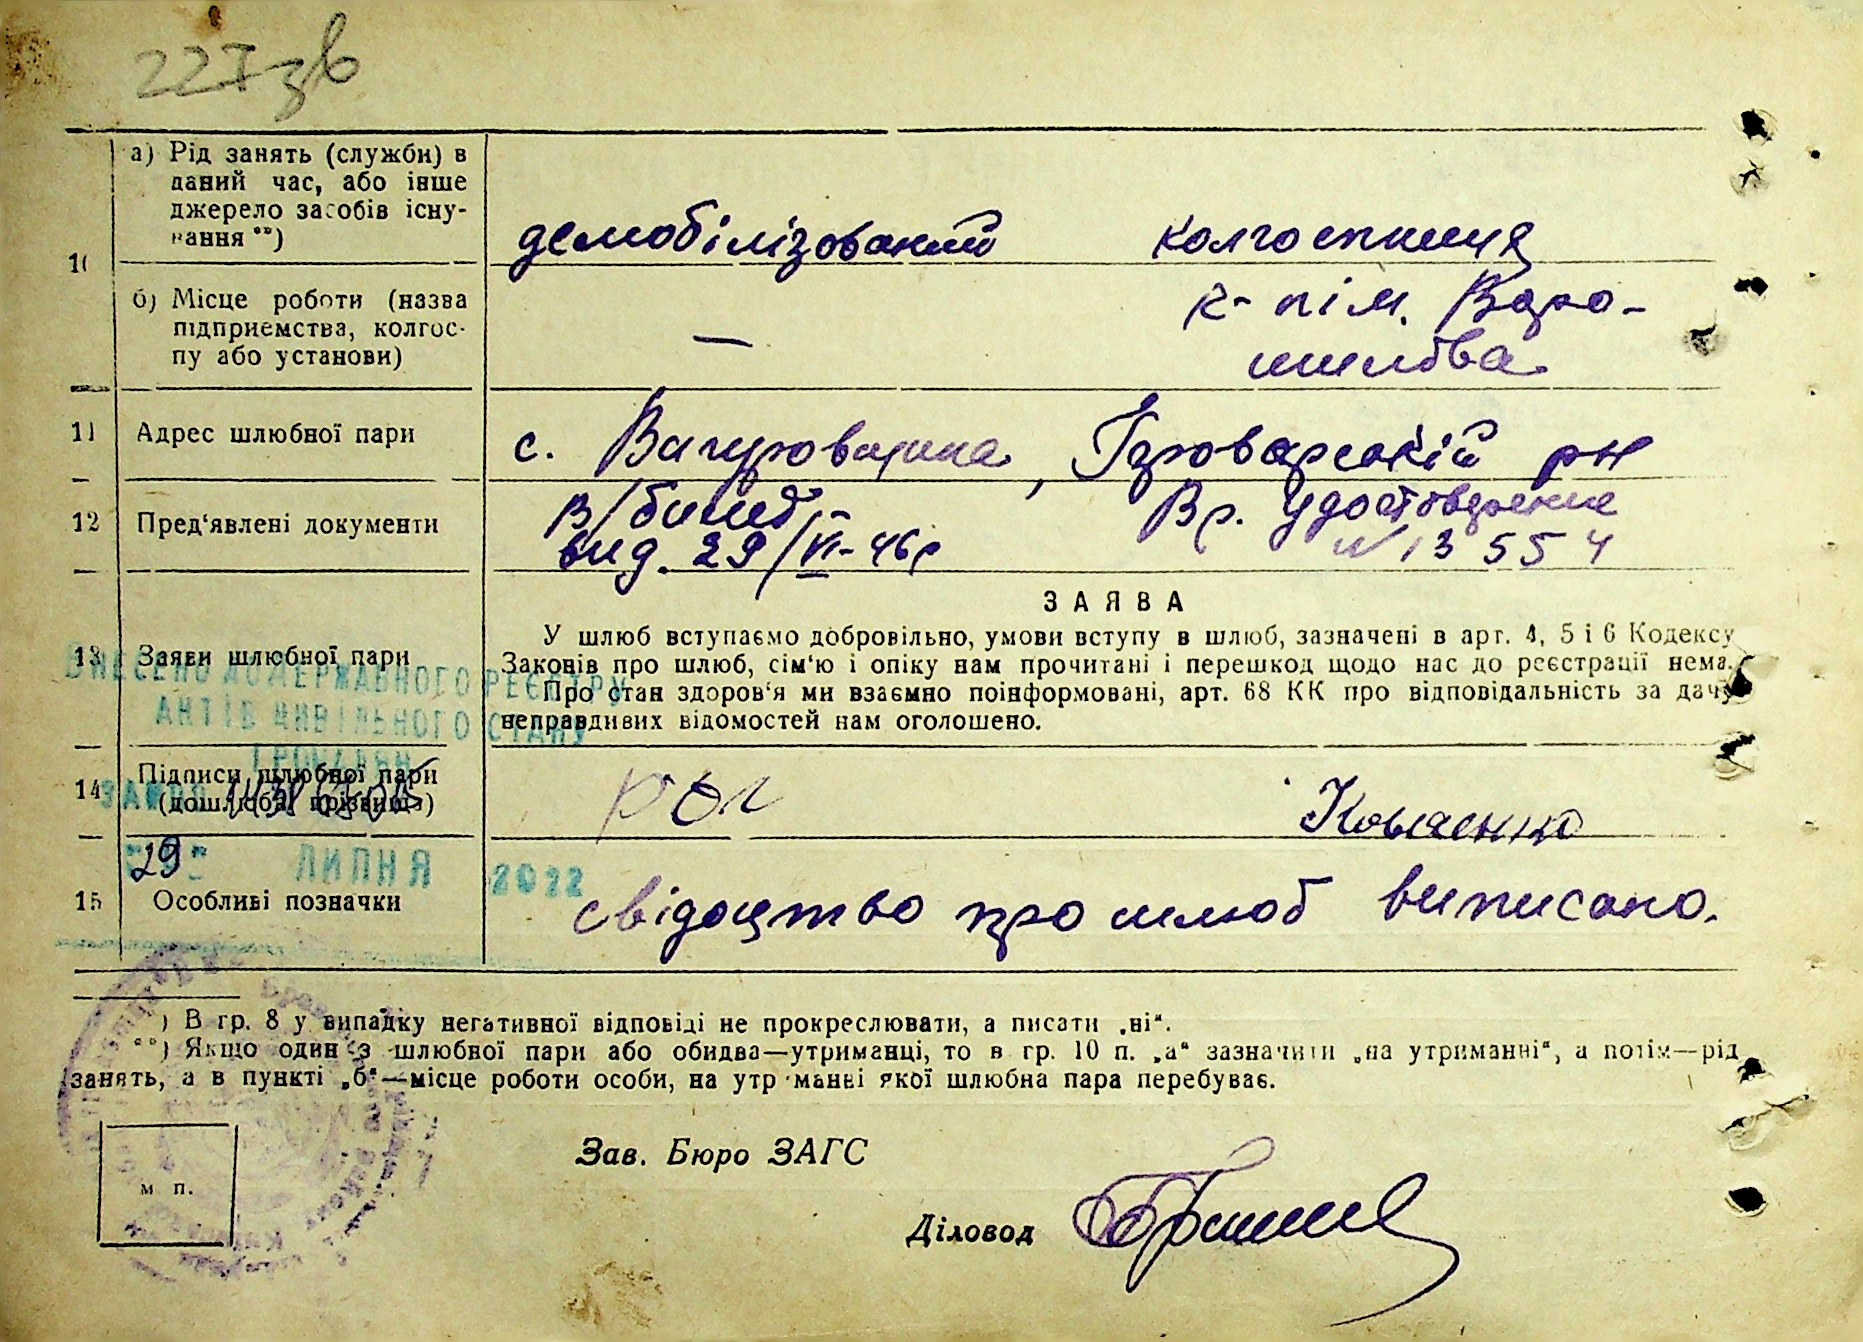 227зв
а) Рід занять (служби) в
даний час, або інше
джерело засобів існу-
вання **)
демобілізований колгоспниця
10
б) Місце роботи (назва
підприємства, колгос-
пу або установи)
— к-п ім. Воро-
шилова
11 Адрес шлюбної пари
с. Вигуровщина, Броварський рн
12 Пред'явлені документи
в/билет Вр. удостоверение
вид. 29/VI-46р N 13554
ЗАЯВА
13 Заяви шлюбної пари
У шлюб вступаємо добровільно, умови вступу в шлюб, зазначені в арт. 4, 5 і 6 Кодексу
Законів про шлюб, сім'ю і опіку нам прочитані і перешкод щодо нас до реєстрації нема.
Про стан здоров'я ми взаємно поінформовані, арт. 68 КК про відповідальність за дачу
неправдивих відомостей нам оголошено.
ВНЕСЕНО ДО ДЕРЖАВНОГО РЕЄСТРУ
АКТІВ ЦИВІЛЬНОГО СТАНУ
ГРОМАДЯН
14 Підписи шлюбної пари
(дошлюбні прізвища)
Коваленко
29 ЛИПНЯ 2022
15 Особливі позначки
свідоцтво про шлюб виписано.
) В гр. 8 у випадку негативної відповіді не прокреслювати, а писати „ні“.
**) Якщо один з шлюбної пари або обидва—утриманці, то в гр. 10 п. „а“ зазначити „на утриманні“, а потім—рід
занять, а в пункті „б“—місце роботи особи, на утриманні якої шлюбна пара перебуває.
Зав. Бюро ЗАГС
м п.
Діловод